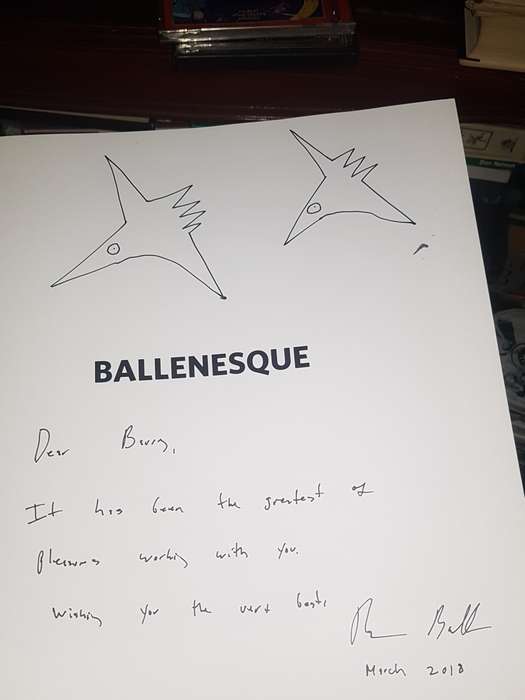 BALLENESQUE
Dear Barry,
It has been the greatest of
pleasures working with you.
Wishing you the very best,
March 2018